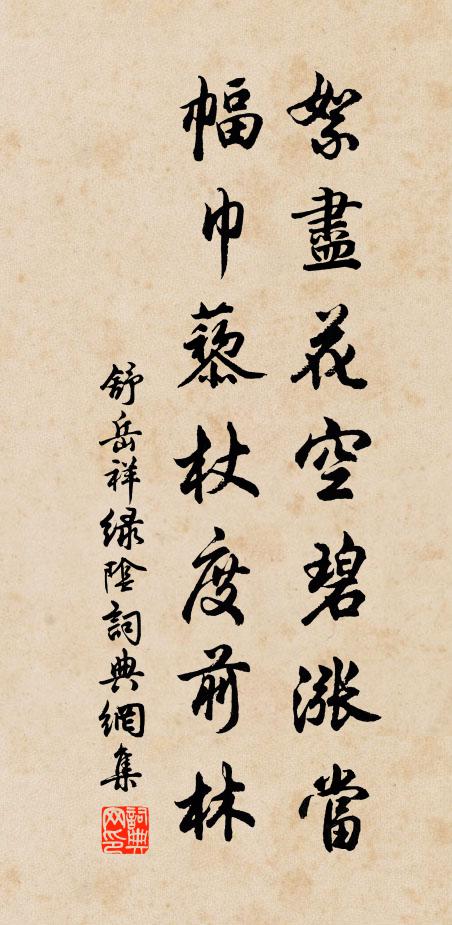 絮盡花空碧漲當
幅巾藜杖度前林
舒岳祥綠陰詞典網集
詞典網印